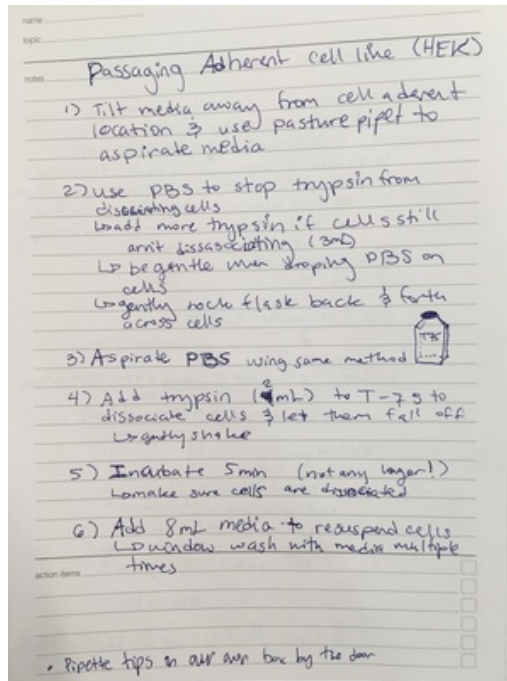 name
topic
notes
Passaging Adherent cell line (HEK)
1) Tilt media away from cell aderent
location & use pasture pipet to
aspirate media
2) use PBS to stop trypsin from
dissociating cells
↳ add more trypsin if cells still
arnit dissasociating (3mL)
↳ be gentle when droping PBS on
cells
↳ gently rock flask back & forth
across cells
3) Aspirate PBS using same method
T75
4) Add trypsin (2mL) to T-75 to
dissociate cells & let them fall off
↳ gently shake
5) Incubate 5min (not any longer!)
↳ make sure cells are dissociated
6) Add 8mL media to resuspend cells
↳ window wash with media multiple
times
action items
• Pipette tips in our own box by the door